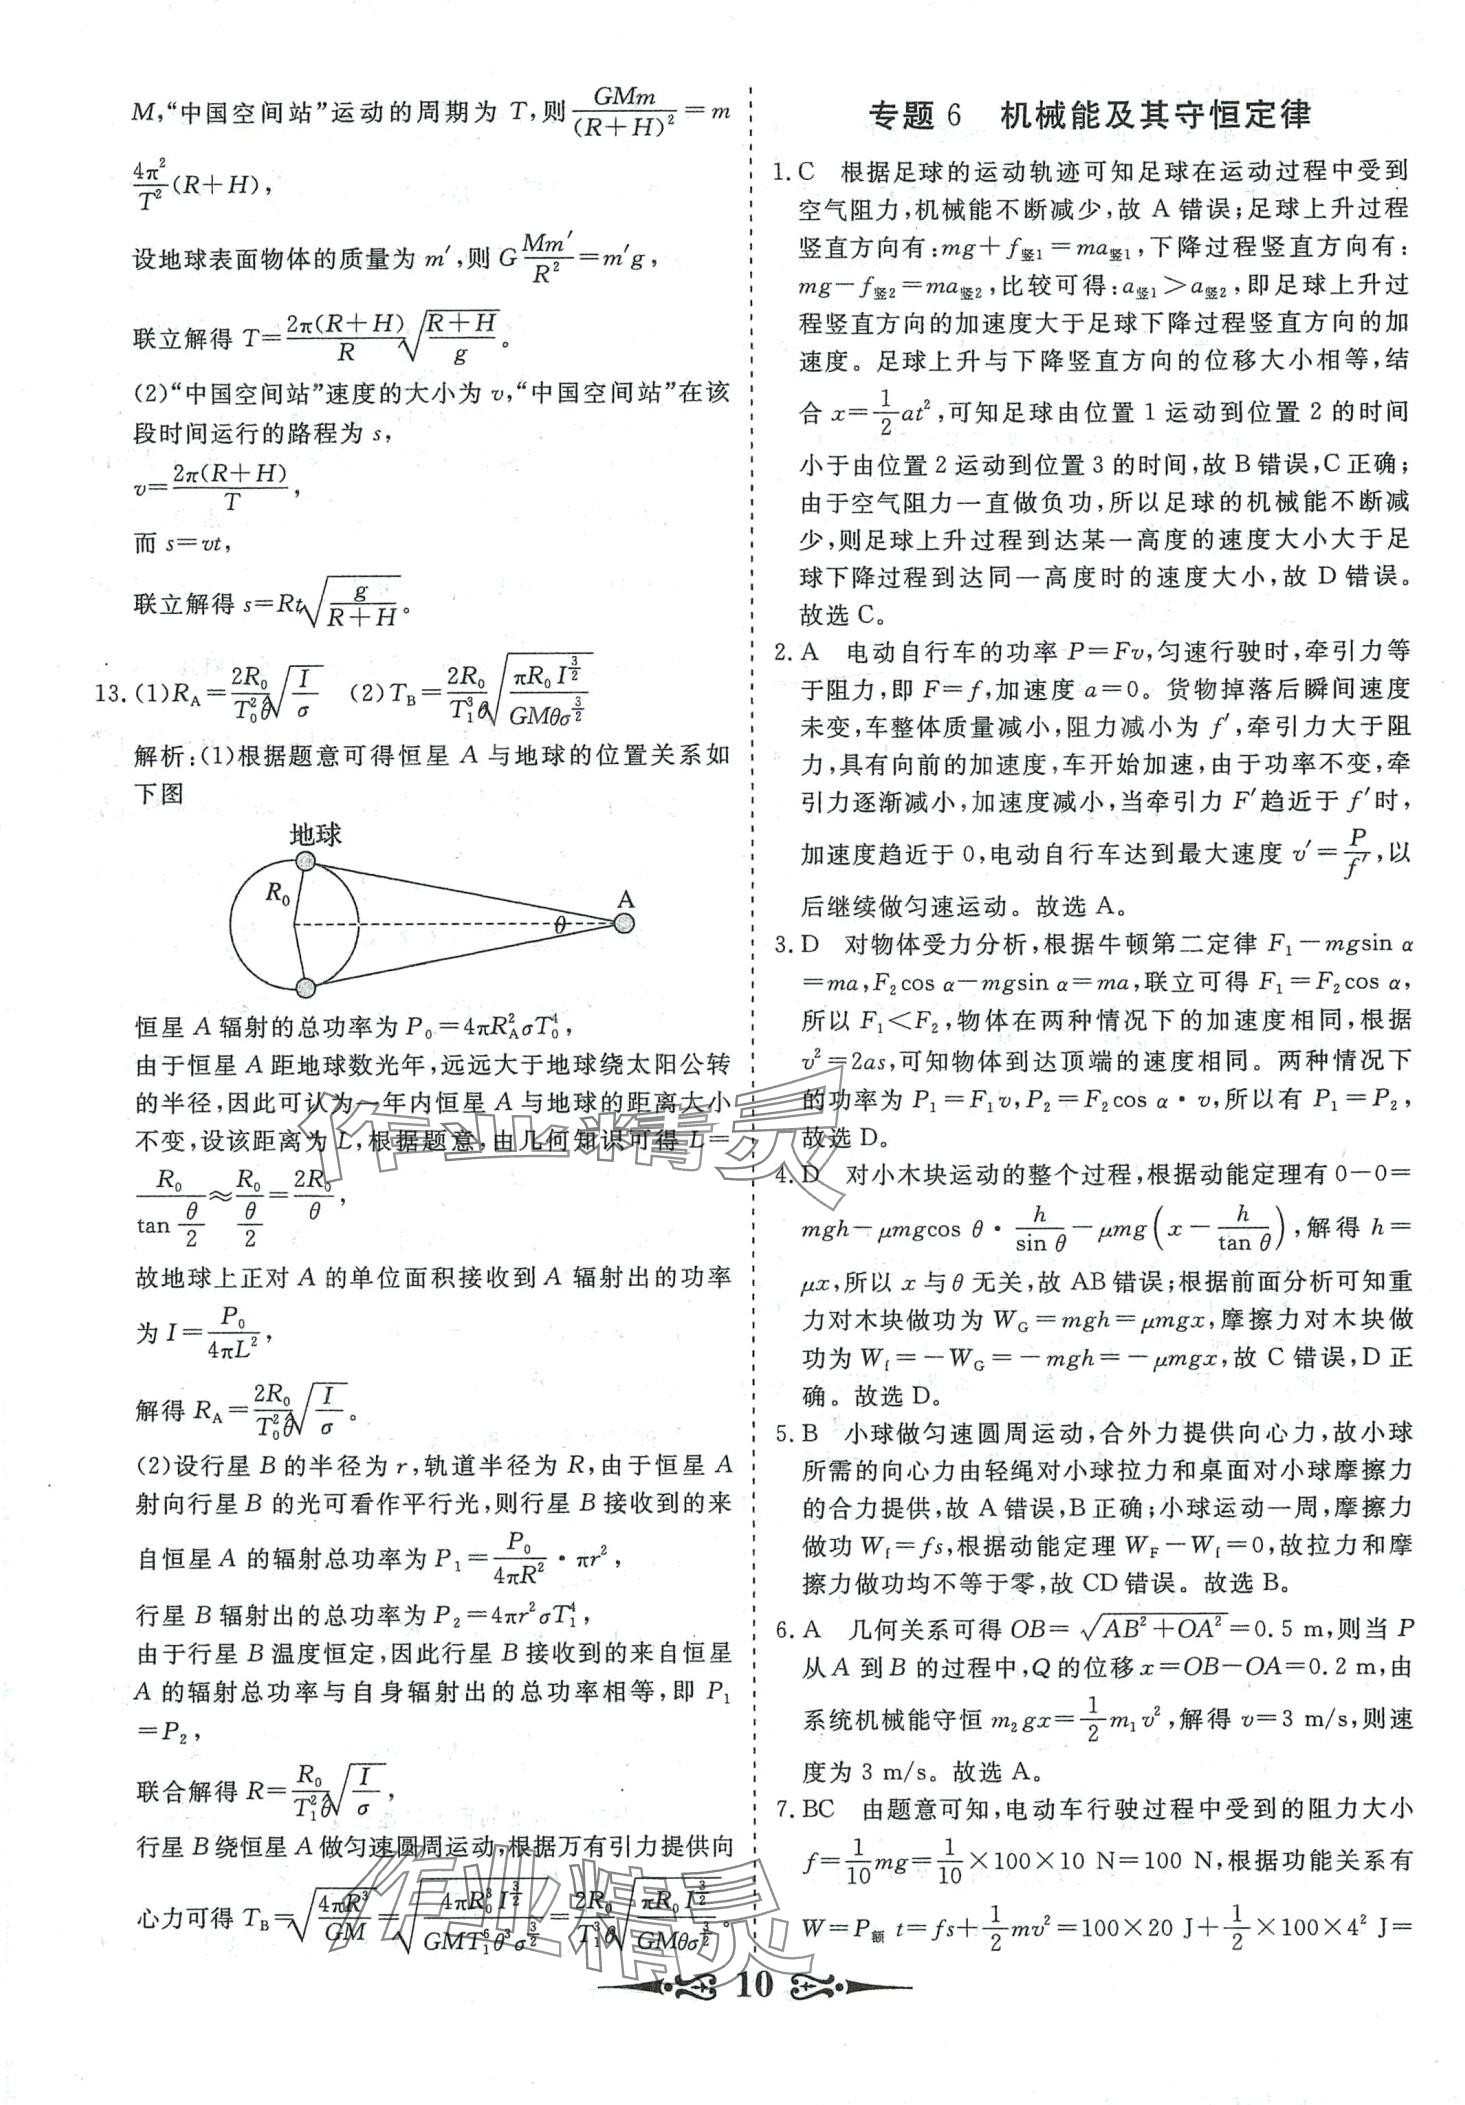 M,“中国空间站”运动的周期为 T,则 GMm/(R+H)² = m
4π²/T² (R+H),
设地球表面物体的质量为 m′,则 G Mm′/R² = m′g,
联立解得 T = 2π(R+H)/R √((R+H)/g)。
(2)“中国空间站”速度的大小为 v,“中国空间站”在该
段时间运行的路程为 s,
v = 2π(R+H)/T,
而 s=vt,
联立解得 s=Rt√(g/(R+H))。
13. (1)R_A = 2R₀/(T₀²θ) √(I/σ) (2)T_B = 2R₀/(T₁³θ) √(πR₀I^(3/2)/(GMθσ^(3/2)))
解析:(1)根据题意可得恒星 A 与地球的位置关系如
下图
地球
R₀
θ
A
恒星 A 辐射的总功率为 P₀=4πR_A²σT₀⁴,
由于恒星 A 距地球数光年,远远大于地球绕太阳公转
的半径,因此可认为一年内恒星 A 与地球的距离大小
不变,设该距离为 L,根据题意,由几何知识可得 L=
R₀/tan(θ/2) ≈ R₀/(θ/2) = 2R₀/θ,
故地球上正对 A 的单位面积接收到 A 辐射出的功率
为 I = P₀/(4πL²),
解得 R_A = 2R₀/(T₀²θ) √(I/σ)。
(2)设行星 B 的半径为 r,轨道半径为 R,由于恒星 A
射向行星 B 的光可看作平行光,则行星 B 接收到的来
自恒星 A 的辐射总功率为 P₁ = P₀/(4πR²) · πr²,
行星 B 辐射出的总功率为 P₂=4πr²σT₁⁴,
由于行星 B 温度恒定,因此行星 B 接收到的来自恒星
A 的辐射总功率与自身辐射出的总功率相等,即 P₁
=P₂,
联合解得 R = R₀/(T₁²θ) √(I/σ),
行星 B 绕恒星 A 做匀速圆周运动,根据万有引力提供向
心力可得 T_B = √(4π²R³/(GM)) = √(4π²R₀³I^(3/2)/(GMT₁⁶θ³σ^(3/2))) = 2R₀/(T₁³θ) √(πR₀I^(3/2)/(GMθσ^(3/2)))。
专题 6 机械能及其守恒定律
1. C 根据足球的运动轨迹可知足球在运动过程中受到
空气阻力,机械能不断减少,故 A 错误;足球上升过程
竖直方向有:mg+f竖1=ma竖1,下降过程竖直方向有:
mg-f竖2=ma竖2,比较可得:a竖1>a竖2,即足球上升过
程竖直方向的加速度大于足球下降过程竖直方向的加
速度。足球上升与下降竖直方向的位移大小相等,结
合 x=1/2 at²,可知足球由位置 1 运动到位置 2 的时间
小于由位置 2 运动到位置 3 的时间,故 B 错误,C 正确;
由于空气阻力一直做负功,所以足球的机械能不断减
少,则足球上升过程到达某一高度的速度大小大于足
球下降过程到达同一高度时的速度大小,故 D 错误。
故选 C。
2. A 电动自行车的功率 P=Fv,匀速行驶时,牵引力等
于阻力,即 F=f,加速度 a=0。货物掉落后瞬间速度
未变,车整体质量减小,阻力减小为 f′,牵引力大于阻
力,具有向前的加速度,车开始加速,由于功率不变,牵
引力逐渐减小,加速度减小,当牵引力 F′趋近于 f′时,
加速度趋近于 0,电动自行车达到最大速度 v′=P/f′,以
后继续做匀速运动。故选 A。
3. D 对物体受力分析,根据牛顿第二定律 F₁-mgsin α
=ma,F₂cos α-mgsin α=ma,联立可得 F₁=F₂cos α,
所以 F₁<F₂,物体在两种情况下的加速度相同,根据
v²=2as,可知物体到达顶端的速度相同。两种情况下
的功率为 P₁=F₁v,P₂=F₂cos α·v,所以有 P₁=P₂,
故选 D。
4. D 对小木块运动的整个过程,根据动能定理有 0-0=
mgh-μmgcos θ·h/sin θ-μmg(x-h/tan θ),解得 h=
μx,所以 x 与 θ 无关,故 AB 错误;根据前面分析可知重
力对木块做功为 W_G=mgh=μmgx,摩擦力对木块做
功为 W_f=-W_G=-mgh=-μmgx,故 C 错误,D 正
确。故选 D。
5. B 小球做匀速圆周运动,合外力提供向心力,故小球
所需的向心力由轻绳对小球拉力和桌面对小球摩擦力
的合力提供,故 A 错误,B 正确;小球运动一周,摩擦力
做功 W_f=fs,根据动能定理 W_F-W_f=0,故拉力和摩
擦力做功均不等于零,故 CD 错误。故选 B。
6. A 几何关系可得 OB=√(AB²+OA²)=0.5 m,则当 P
从 A 到 B 的过程中,Q 的位移 x=OB-OA=0.2 m,由
系统机械能守恒 m₂gx=1/2 m₁v²,解得 v=3 m/s,则速
度为 3 m/s。故选 A。
7. BC 由题意可知,电动车行驶过程中受到的阻力大小
f=1/10 mg=1/10×100×10 N=100 N,根据功能关系有
W=P额 t=fs+1/2 mv²=100×20 J+1/2×100×4² J=
10
作业精灵
作业精灵